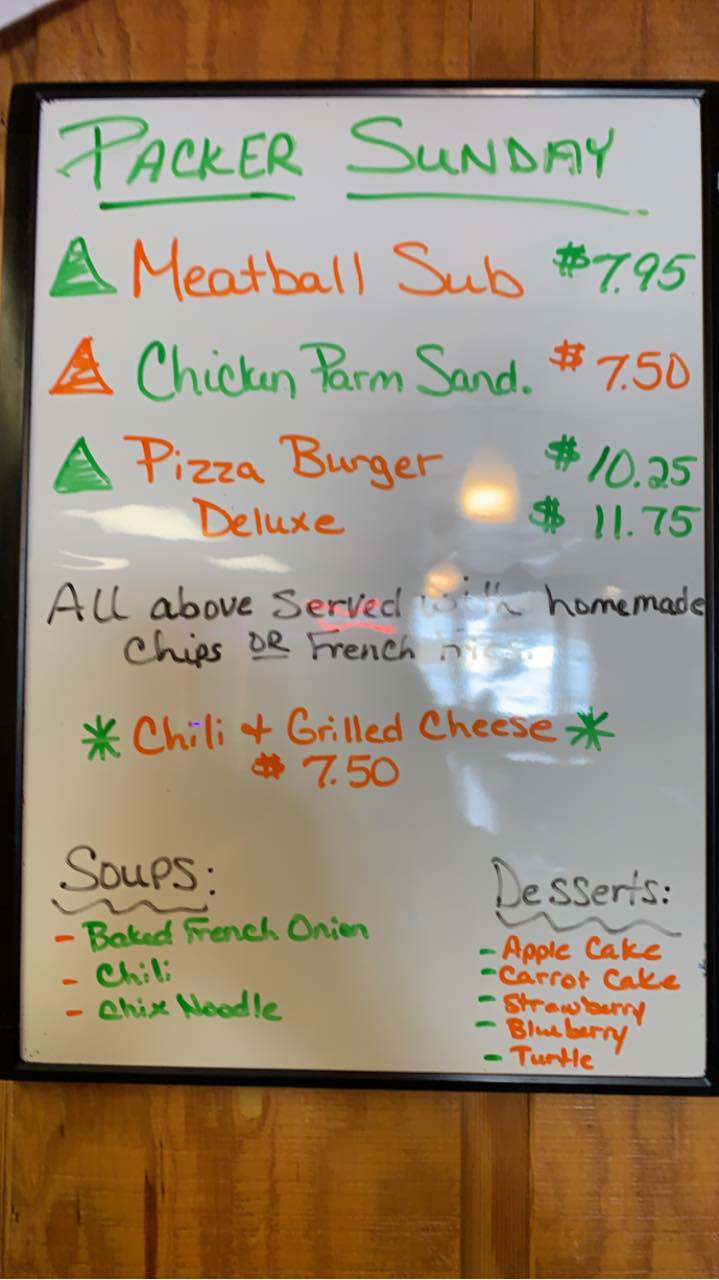 PACKER SUNDAY
Meatball Sub $7.95
Chicken Parm Sand. $7.50
Pizza Burger $10.25
Deluxe $11.75
All above served with homemade
chips OR French fries.
* Chili & Grilled Cheese *
$7.50
Soups:
- Baked French Onion
- Chili
- Chix Noodle
Desserts:
- Apple Cake
- Carrot Cake
- Strawberry
- Blueberry
- Turtle